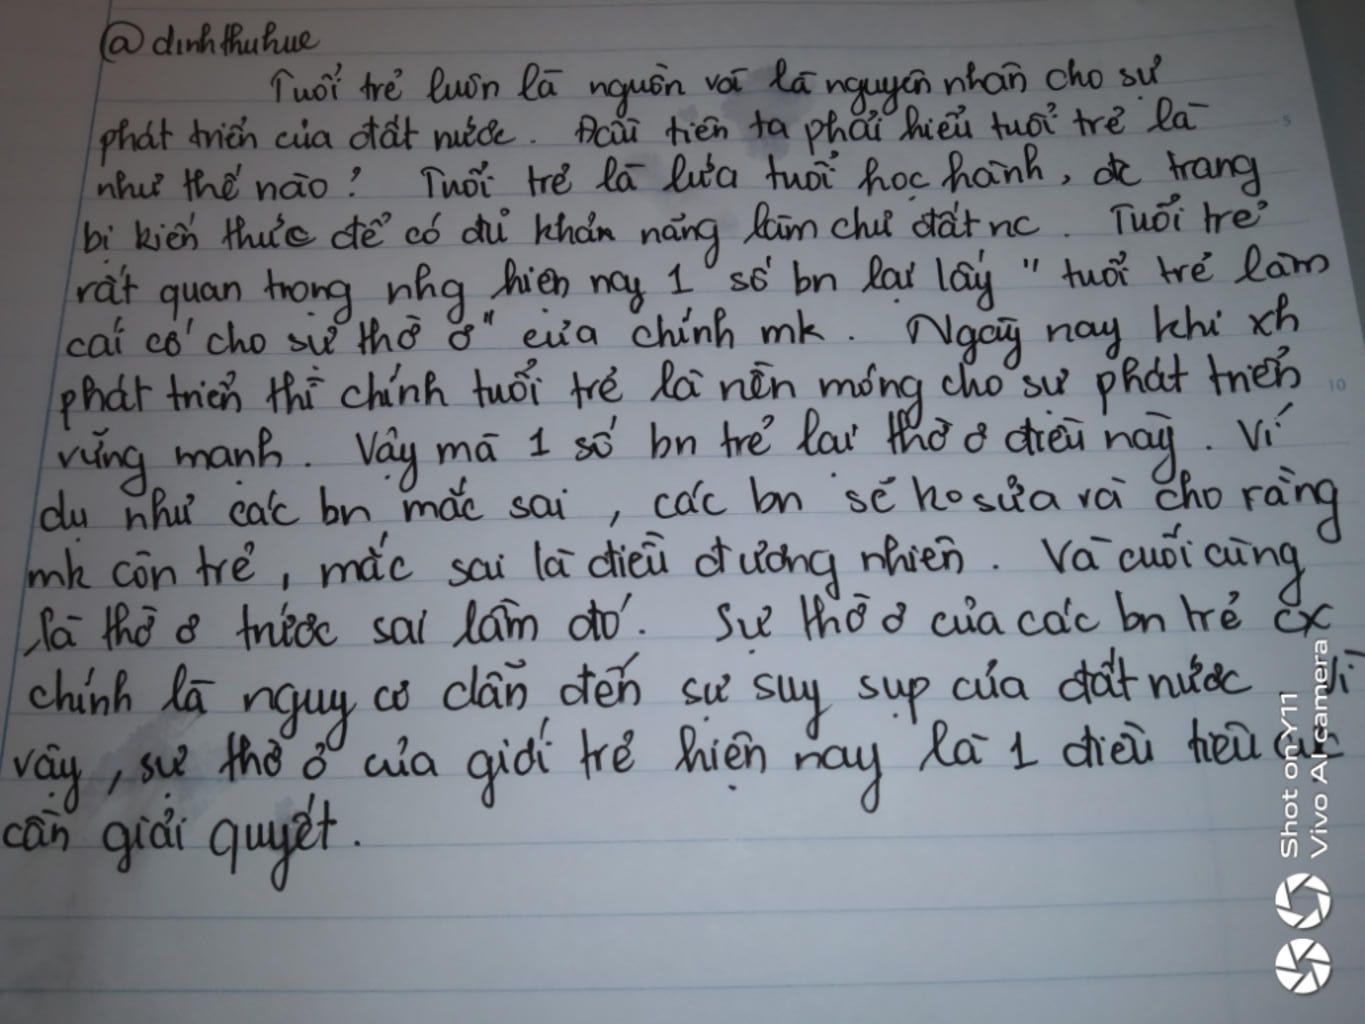 @dinhthuhue
Tuổi trẻ luôn là nguồn và là nguyên nhân cho sự
phát triển của đất nước. Đầu tiên ta phải hiểu tuổi trẻ là
như thế nào? Tuổi trẻ là lứa tuổi học hành, đc trang
bị kiến thức để có đủ khản năng làm chủ đất nc. Tuổi trẻ
rất quan trọng nhg hiện nay 1 số bn lại lấy "tuổi trẻ làm
cái cớ cho sự thờ ơ" của chính mk. Ngày nay khi xh
phát triển thì chính tuổi trẻ là nền móng cho sự phát triển
vững mạnh. Vậy mà 1 số bn trẻ lại thờ ơ điều này. Ví
dụ như các bn mắc sai, các bn sẽ ko sửa và cho rằng
mk còn trẻ, mắc sai là điều đương nhiên. Và cuối cùng
là thờ ơ trước sai lầm đó. Sự thờ ơ của các bn trẻ cx
chính là nguy cơ dẫn đến sự suy sụp của đất nước Vì
vậy, sự thờ ơ của giới trẻ hiện nay là 1 điều tiêu cực
cần giải quyết.
Shot on Y11
Vivo AI camera
5
10